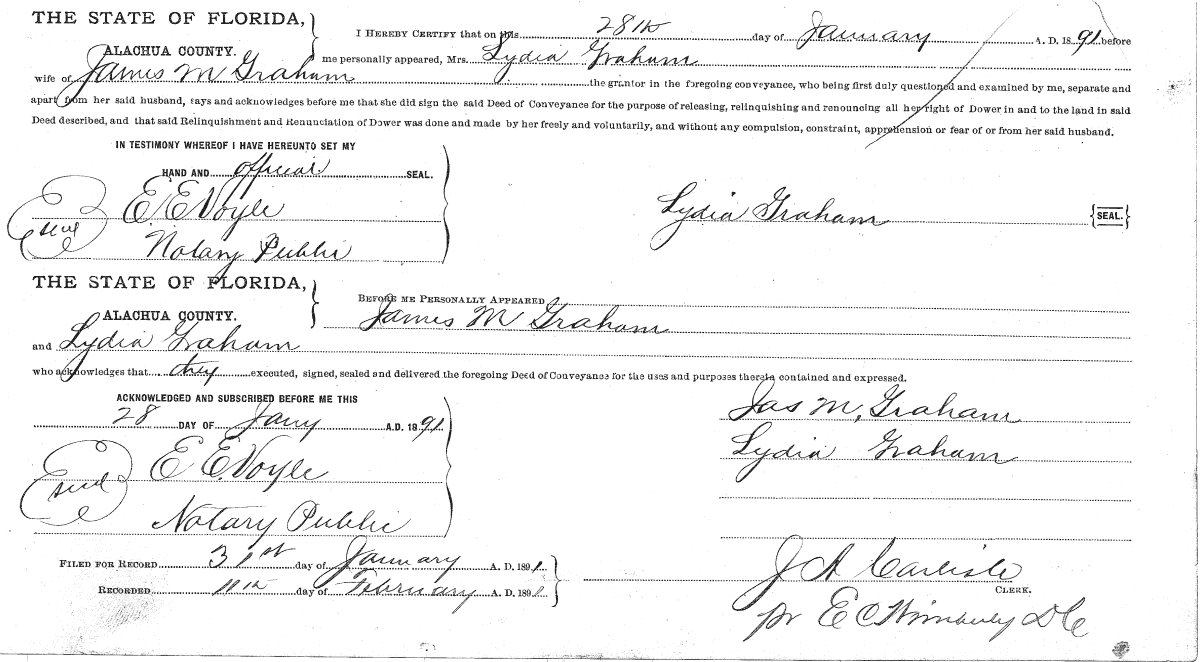 THE STATE OF FLORIDA,
ALACHUA COUNTY.
I HEREBY CERTIFY that on this 28th day of January A. D. 18 91 before
me personally appeared, Mrs. Lydia Graham
wife of James M Graham the grantor in the foregoing conveyance, who being first duly questioned and examined by me, separate and
apart from her said husband, says and acknowledges before me that she did sign the said Deed of Conveyance for the purpose of releasing, relinquishing and renouncing all her right of Dower in and to the land in said
Deed described, and that said Relinquishment and Renunciation of Dower was done and made by her freely and voluntarily, and without any compulsion, constraint, apprehension or fear of or from her said husband.
IN TESTIMONY WHEREOF I HAVE HEREUNTO SET MY
HAND AND official SEAL.
E E Voyle
Seal
Notary Public
Lydia Graham {SEAL.}
THE STATE OF FLORIDA,
ALACHUA COUNTY.
BEFORE ME PERSONALLY APPEARED
James M Graham
and Lydia Graham
who acknowledges that they executed, signed, sealed and delivered the foregoing Deed of Conveyance for the uses and purposes therein contained and expressed.
ACKNOWLEDGED AND SUBSCRIBED BEFORE ME THIS
28 DAY OF Jany A.D. 18 91
E E. Voyle
Seal
Notary Public
Jas M. Graham
Lydia Graham
FILED FOR RECORD 31st day of January A. D. 1891.
RECORDED 11th day of February A. D. 1891
J A Carlisle
CLERK.
pr E C Wimberly D C